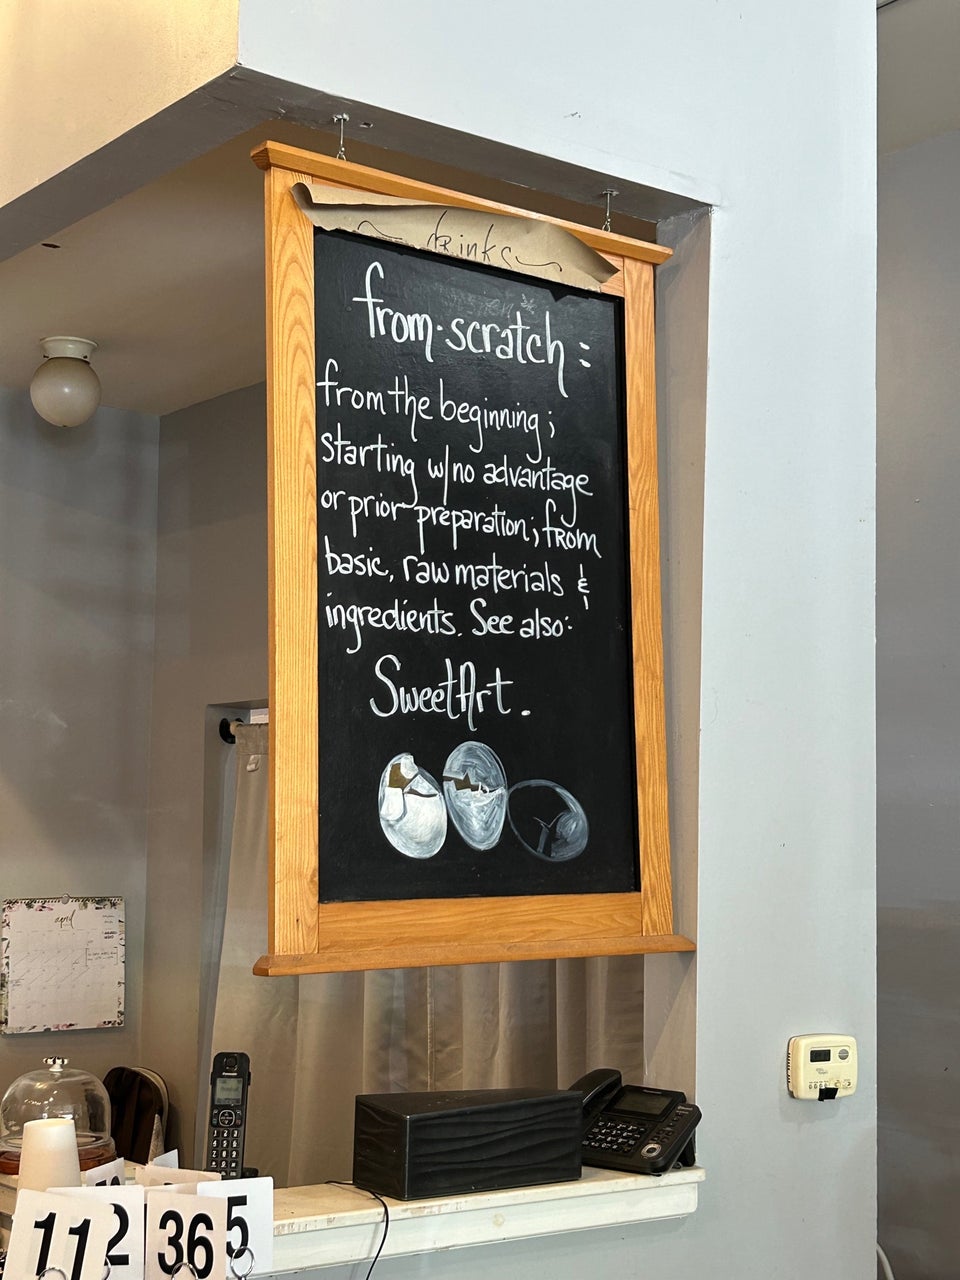 drinks
from-scratch:
from the beginning;
starting w/no advantage
or prior preparation; from
basic, raw materials &
ingredients. See also:
SweetArt.
april
Panasonic
11
2
36
5